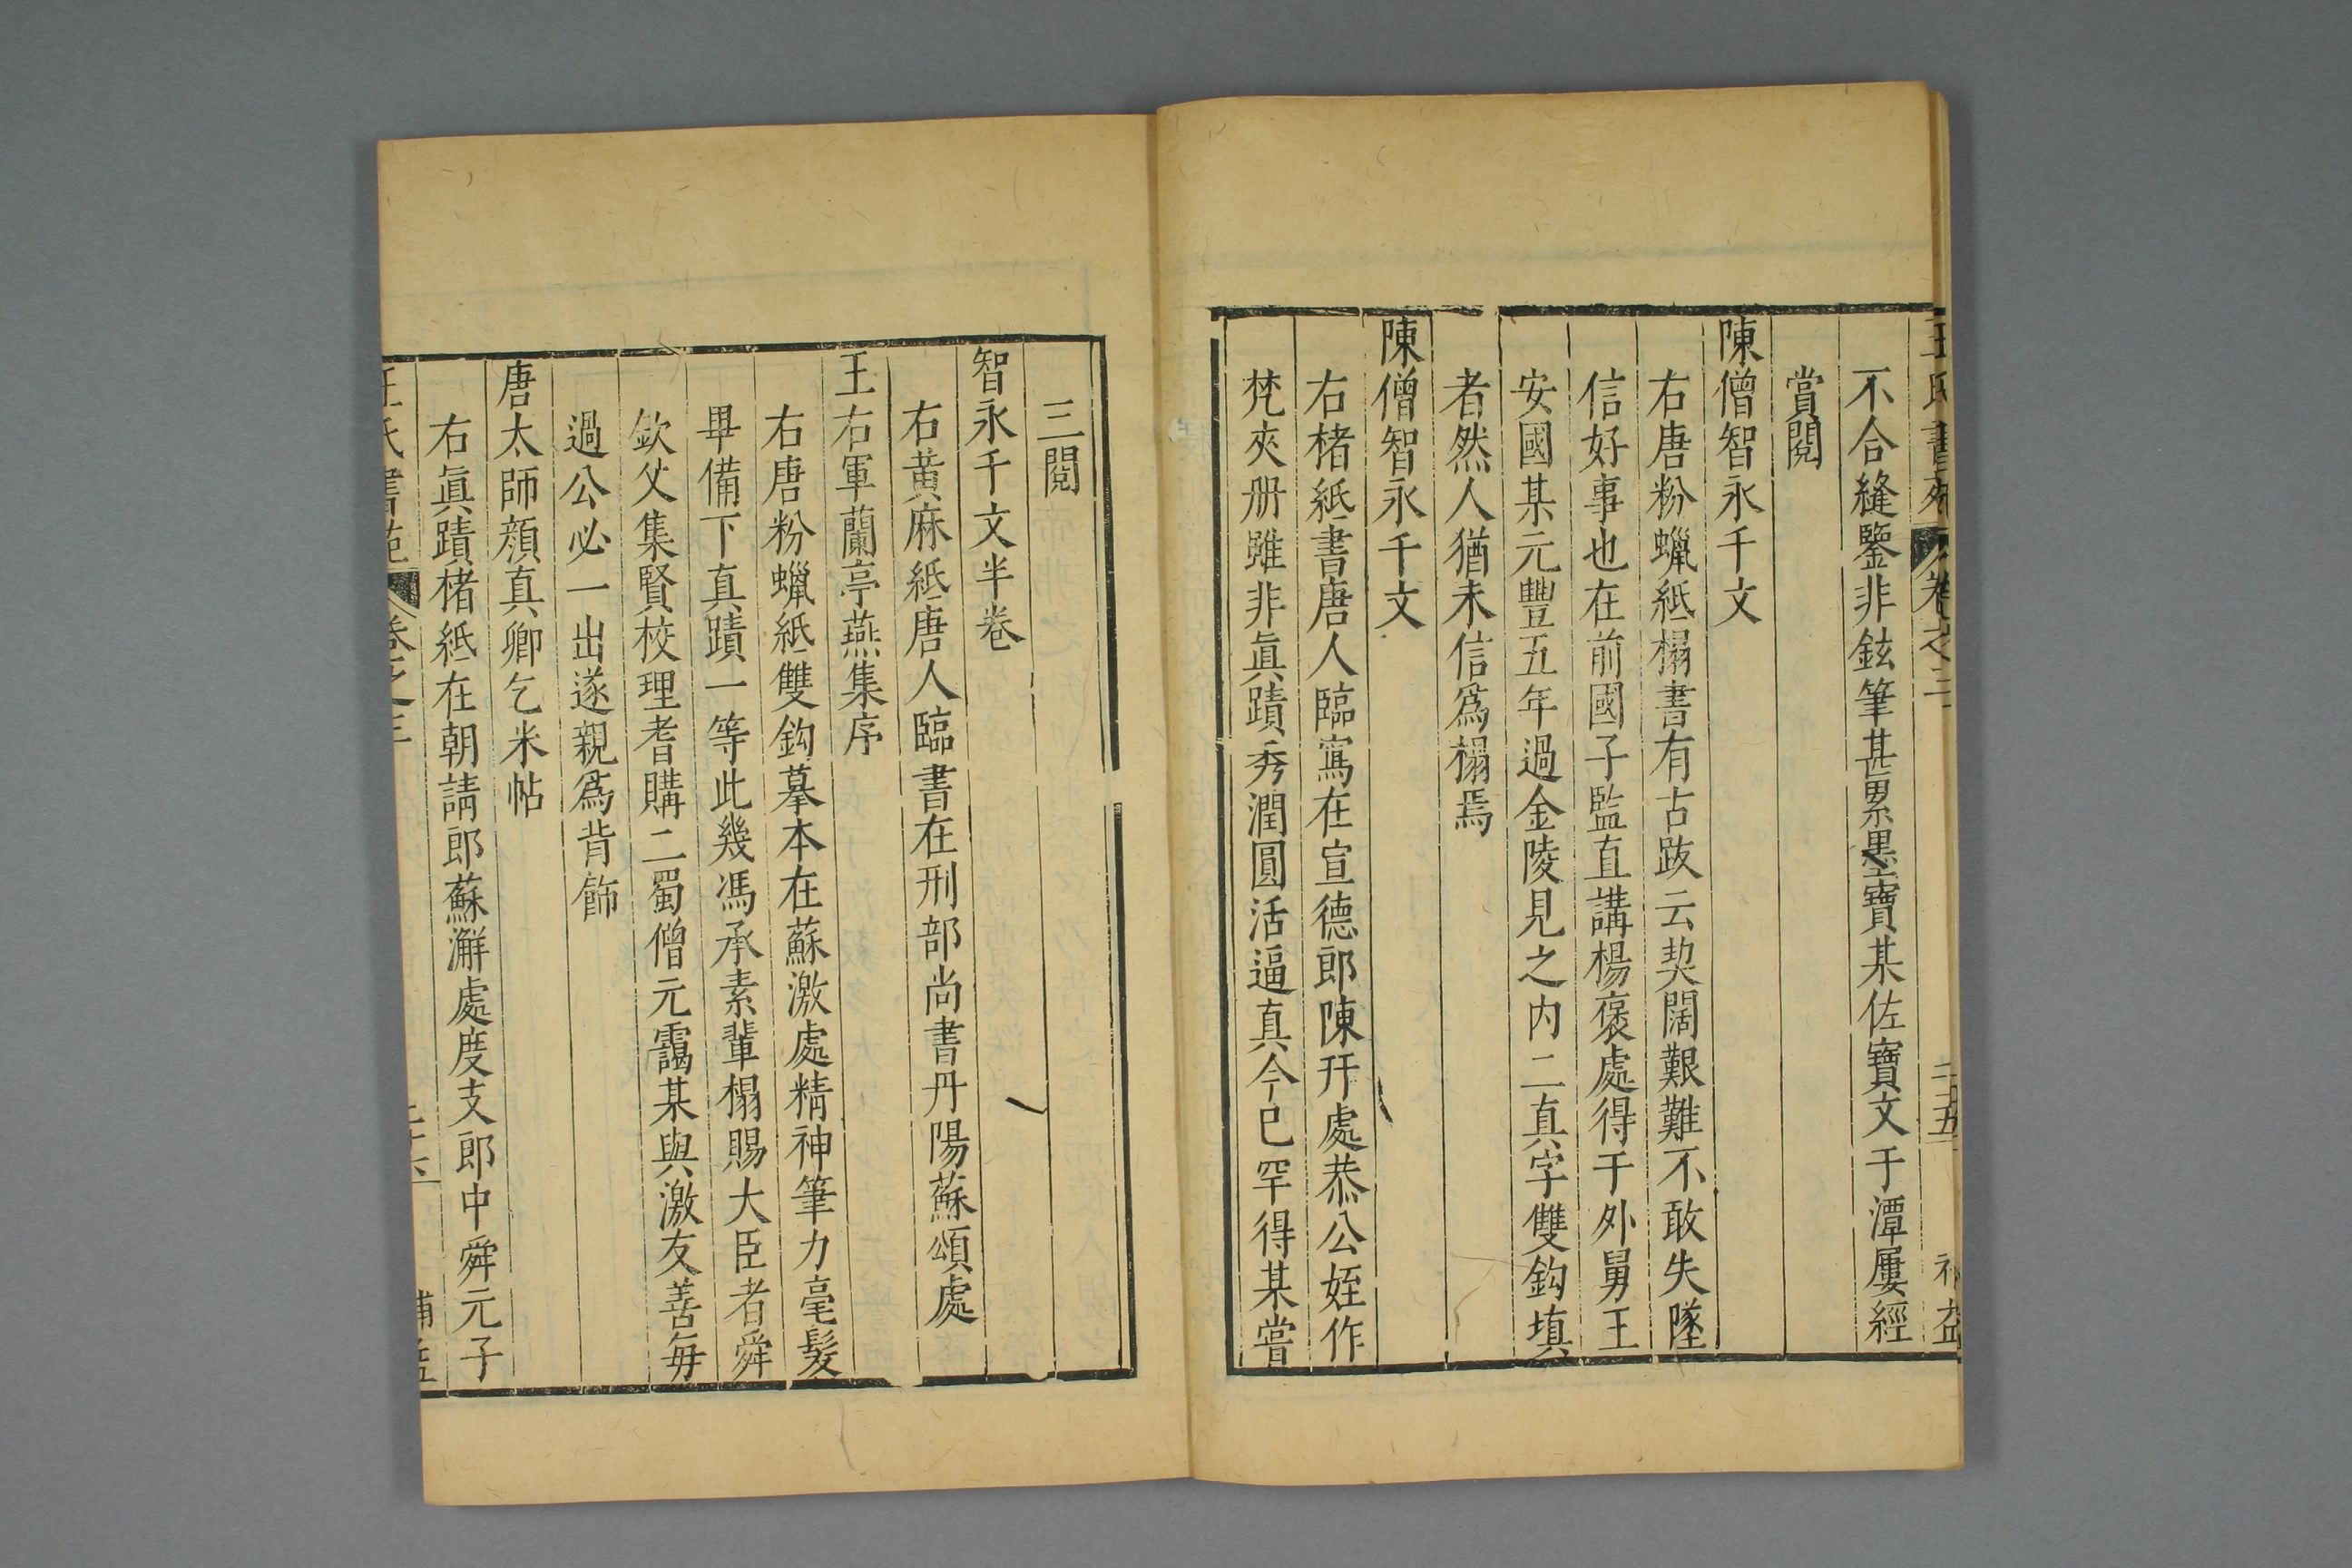 王氏書苑 卷之三 二十五 補益
不合縫鑒非鉉筆甚累墨寶某佐寶文于潭屢經
賞閱
陳僧智永千文
右唐粉蠟紙榻書有古跋云契闊艱難不敢失墜
信好事也在前國子監直講楊褒處得于外舅王
安國某元豐五年過金陵見之内二真字雙鈎填
者然人猶未信爲榻焉
陳僧智永千文
右楮紙書唐人臨寫在宣德郎陳幵處恭公姪作
梵夾册雖非眞蹟秀潤圓活逼真今已罕得某嘗
三閱
智永千文半卷
右黄麻紙唐人臨書在刑部尚書丹陽蘇頌處
王右軍蘭亭燕集序
右唐粉蠟紙雙鈎摹本在蘇激處精神筆力毫髮
畢備下真蹟一等此幾馮承素輩榻賜大臣者舜
欽父集賢校理耆購二蜀僧元靄某與激友善每
過公必一出遂親爲背飾
唐太師顏真卿乞米帖
右眞蹟楮紙在朝請郎蘇澥處度支郎中舜元子
王氏書苑 卷之三 二十六 補益